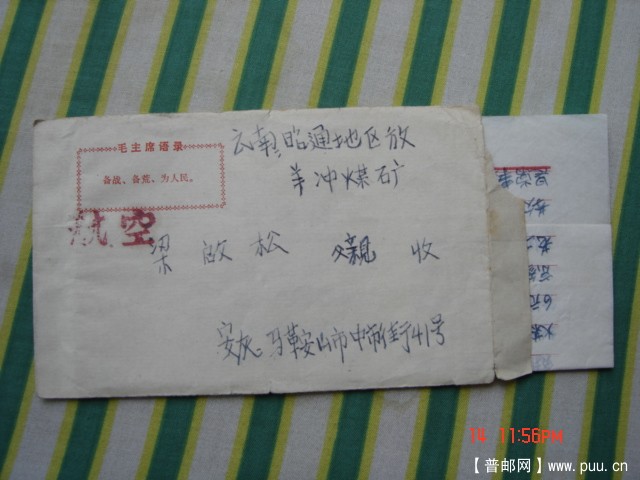 毛主席语录
备战、备荒、为人民。
航空
云南昭通地区放
羊冲煤矿
梁 松 父亲 收
安灰 马鞍山市中市街41号
14 11:56PM
【普邮网】www.puu.cn